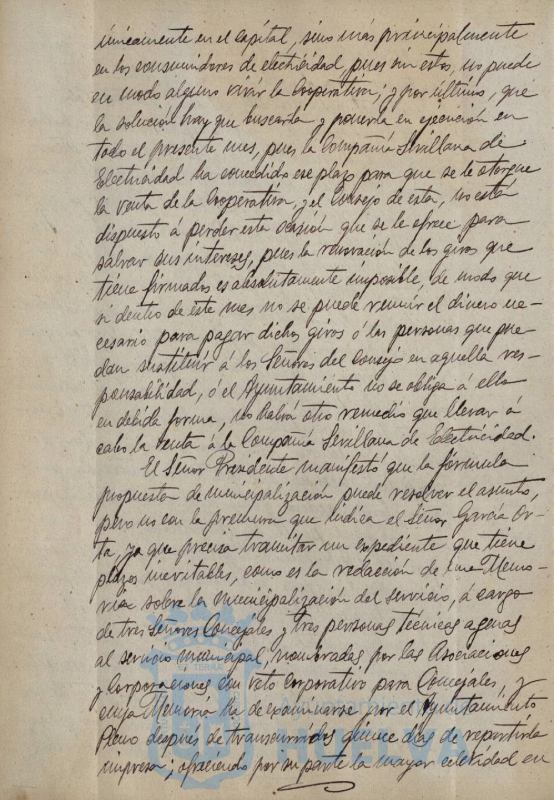 únicamente en el capital, sino más principalmente
en los consumidores de electricidad, pues sin estos, no puede
en modo alguno vivir la Cooperativa; y por último, que
la solución hay que buscarla y ponerla en ejecución en
todo el presente mes, pues la Compañía Sevillana de
Electricidad ha concedido ese plazo para que se le otorgue
la venta de la Cooperativa, y el Consejo de esta, no está
dispuesto á perder esta ocasión que se le ofrece para
salvar sus intereses, pues la renovación de los giros que
tiene firmados es absolutamente imposible, de modo que
si dentro de este mes no se puede reunir el dinero ne-
cesario para pagar dichos giros ó las personas que pue-
dan sustituir á los Señores del Consejo en aquella res-
ponsabilidad, ó el Ayuntamiento no se obliga á ello
en debida forma, no habrá otro remedio que llevar á
cabo la venta á la Compañía Sevillana de Electricidad.
El Señor Presidente manifestó que la fórmula
propuesta de municipalización puede resolver el asunto,
pero no con la premura que indica el Señor García Or-
ta, ya que precisa tramitar un expediente que tiene
plazos inevitables, como es la redacción de una Memo-
ria sobre la municipalización del servicio, á cargo
de tres Señores Concejales y tres personas técnicas agenas
al servicio municipal, nombradas por las Asociaciones
y Corporaciones con voto corporativo para Concejales, y
cuya Memoria ha de examinarse por el Ayuntamiento
Pleno después de transcurridos quince días de repartirla
impresa; ofreciendo por su parte la mayor celeridad en
HUELVA